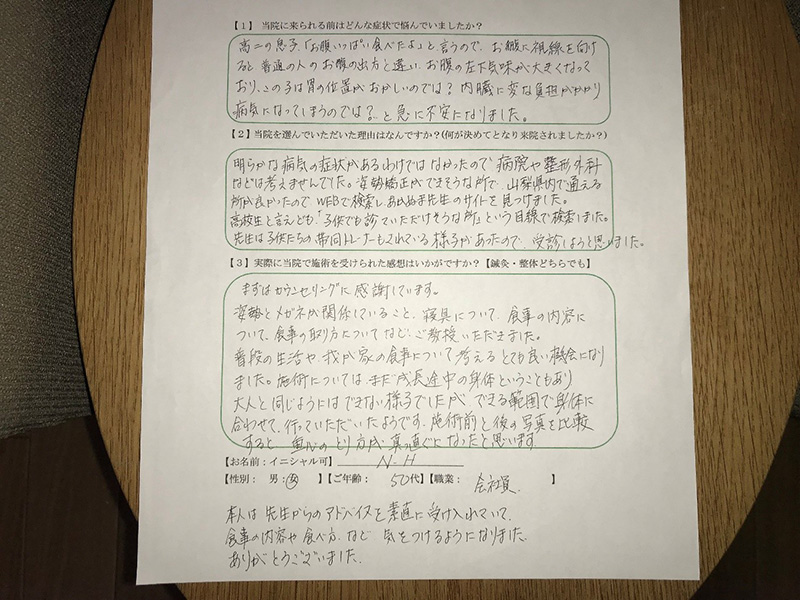 【1】 当院に来られる前はどんな症状で悩んでいましたか？
高二の息子、「お腹いっぱい食べたよ」と言うので、お腹に視線を向け
ると普通の人のお腹の出方と違い、お腹の左下気味が大きくなって
おり、この子は胃の位置がおかしいのでは？ 内臓に変な負担がかかり
病気になってしまうのでは？と急に不安になりました。
【2】当院を選んでいただいた理由はなんですか？(何が決めてとなり来院されましたか？)
明らかな病気の症状があるわけではなかったので 病院や整形外科
などは考えませんでした。姿勢矯正ができそうな所で、山梨県内で通える
所が良かったので、WEBで検索しあかぬま先生のサイトを見つけました。
高校生と言えども、「子供でも診ていただけそうな所」という目線で検索しました。
先生は子供たちの帯同トレーナーもされている様子があったので、受診しようと思いました。
【3】実際に当院で施術を受けられた感想はいかがですか？【鍼灸・整体どちらでも】
まずはカウンセリングに感謝しています。
姿勢とメガネが関係していること、寝具について、食事の内容に
ついて、食事の取り方についてなど、ご教授いただきました。
普段の生活や、我が家の食事について考えるとても良い機会になり
ました。施術については、まだ成長途中の身体ということもあり
大人と同じようにはできない様子でしたが、できる範囲で身体に
合わせて、行っていただいたようです。施術前と後の写真を比較
すると 重心のとり方が真っ直ぐになったと思います
【お名前：イニシャル可】 N.H
【性別： 男：女 】【ご年齢： 50代】【職業： 会社員 】
本人は 先生からのアドバイスを素直に受け入れていて、
食事の内容や食べ方、など 気をつけるようになりました。
ありがとうございました。